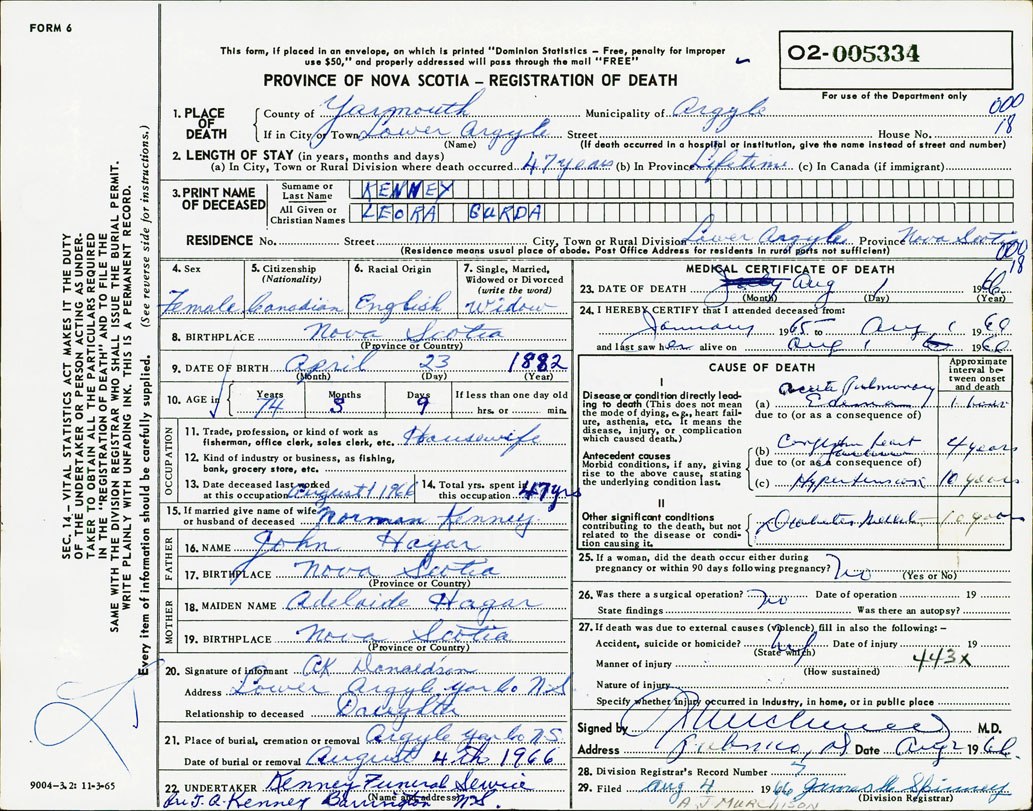 FORM 6
This form, if placed in an envelope, on which is printed "Dominion Statistics – Free, penalty for improper
use $50," and properly addressed will pass through the mail "FREE"
02-005334
For use of the Department only
PROVINCE OF NOVA SCOTIA – REGISTRATION OF DEATH
000
18
1. PLACE OF DEATH County of Yarmouth Municipality of Argyle
If in City or Town Lower Argyle Street House No.
(Name) (If death occurred in a hospital or institution, give the name instead of street and number)
2. LENGTH OF STAY (in years, months and days)
(a) In City, Town or Rural Division where death occurred 47 years (b) In Province Lifetime (c) In Canada (if immigrant)
3. PRINT NAME OF DECEASED
Surname or Last Name KENNEY
All Given or Christian Names LEORA GURDA
RESIDENCE No. Street City, Town or Rural Division Lower Argyle Province Nova Scotia
(Residence means usual place of abode. Post Office Address for residents in rural parts not sufficient)
000
18
SEC. 14 – VITAL STATISTICS ACT MAKES IT THE DUTY
OF THE UNDERTAKER OR PERSON ACTING AS UNDER-
TAKER TO OBTAIN ALL THE PARTICULARS REQUIRED
IN THE "REGISTRATION OF DEATH" AND TO FILE THE
SAME WITH THE DIVISION REGISTRAR WHO SHALL ISSUE THE BURIAL PERMIT.
WRITE PLAINLY WITH UNFADING INK. THIS IS A PERMANENT RECORD.
Every item of information should be carefully supplied. (See reverse side for instructions.)
4. Sex Female
5. Citizenship (Nationality) Canadian
6. Racial Origin English
7. Single, Married, Widowed or Divorced (write the word) Widow
8. BIRTHPLACE Nova Scotia
(Province or Country)
9. DATE OF BIRTH April 23 1882
(Month) (Day) (Year)
10. AGE in Years Months Days If less than one day old
3 9 hrs. or min.
OCCUPATION
11. Trade, profession, or kind of work as fisherman, office clerk, sales clerk, etc. Housewife
12. Kind of industry or business, as fishing, bank, grocery store, etc.
13. Date deceased last worked at this occupation August 1 1966
14. Total yrs. spent in this occupation 47 yrs
15. If married give name of wife or husband of deceased Norman Kenney
FATHER
16. NAME John Hagar
17. BIRTHPLACE Nova Scotia
(Province or Country)
MOTHER
18. MAIDEN NAME Adelaide Hagar
19. BIRTHPLACE Nova Scotia
(Province or Country)
20. Signature of informant Donaldson
Address Lower Argyle Yar Co N.S
Relationship to deceased Daughter
21. Place of burial, cremation or removal Argyle Yar Co N.S.
Date of burial or removal August 4th 1966
22. UNDERTAKER Kenney Funeral Service
(Name and address)
J. A. Kenney Barrington N.S.
9004–3.2: 11-3-65
MEDICAL CERTIFICATE OF DEATH
23. DATE OF DEATH Aug 1 1966
(Month) (Day) (Year)
24. I HEREBY CERTIFY that I attended deceased from:
January 1965 to Aug 1 19
and last saw her alive on Aug 1 19
CAUSE OF DEATH
Approximate interval between onset and death
I
Disease or condition directly leading to death (This does not mean the mode of dying, e.g., heart failure, asthenia, etc. It means the disease, injury, or complication which caused death.)
(a) Acute Pulmonary Edema 1 hour
due to (or as a consequence of)
Antecedent causes
Morbid conditions, if any, giving rise to the above cause, stating the underlying condition last.
(b) heart 4 years
due to (or as a consequence of)
(c) Hypertension 10 years
II
Other significant conditions contributing to the death, but not related to the disease or condition causing it.
Diabetes years
25. If a woman, did the death occur either during
pregnancy or within 90 days following pregnancy? no
(Yes or No)
26. Was there a surgical operation? no Date of operation 19
State findings Was there an autopsy?
27. If death was due to external causes (violence) fill in also the following: –
Accident, suicide or homicide? Date of injury 19
(State which)
Manner of injury 443X
(How sustained)
Nature of injury
Specify whether injury occurred in Industry, in home, or in public place
Signed by M.D.
Address Date Aug 2 1966
28. Division Registrar's Record Number
29. Filed Aug 4 1966 James Spinney
(Division Registrar)
A J MURCHISON